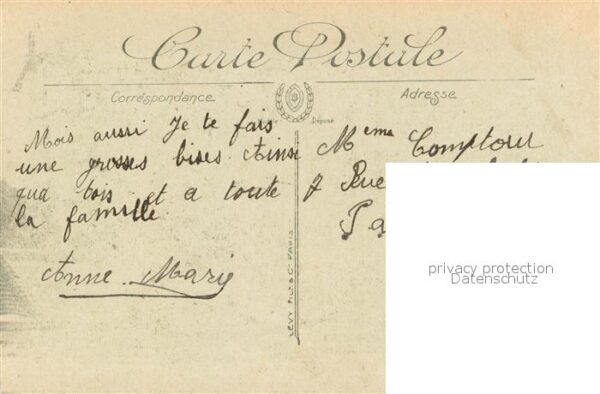 Carte Postale
Correspondance
Adresse
Déposé
Mois aussi Je te fais
une grosses bises Ainsi
qua tois et a toute
la famille
Anne Marie
Meme Comptour
7 Rue
Pa
LEVY FILS & Cie PARIS
privacy protection
Datenschutz